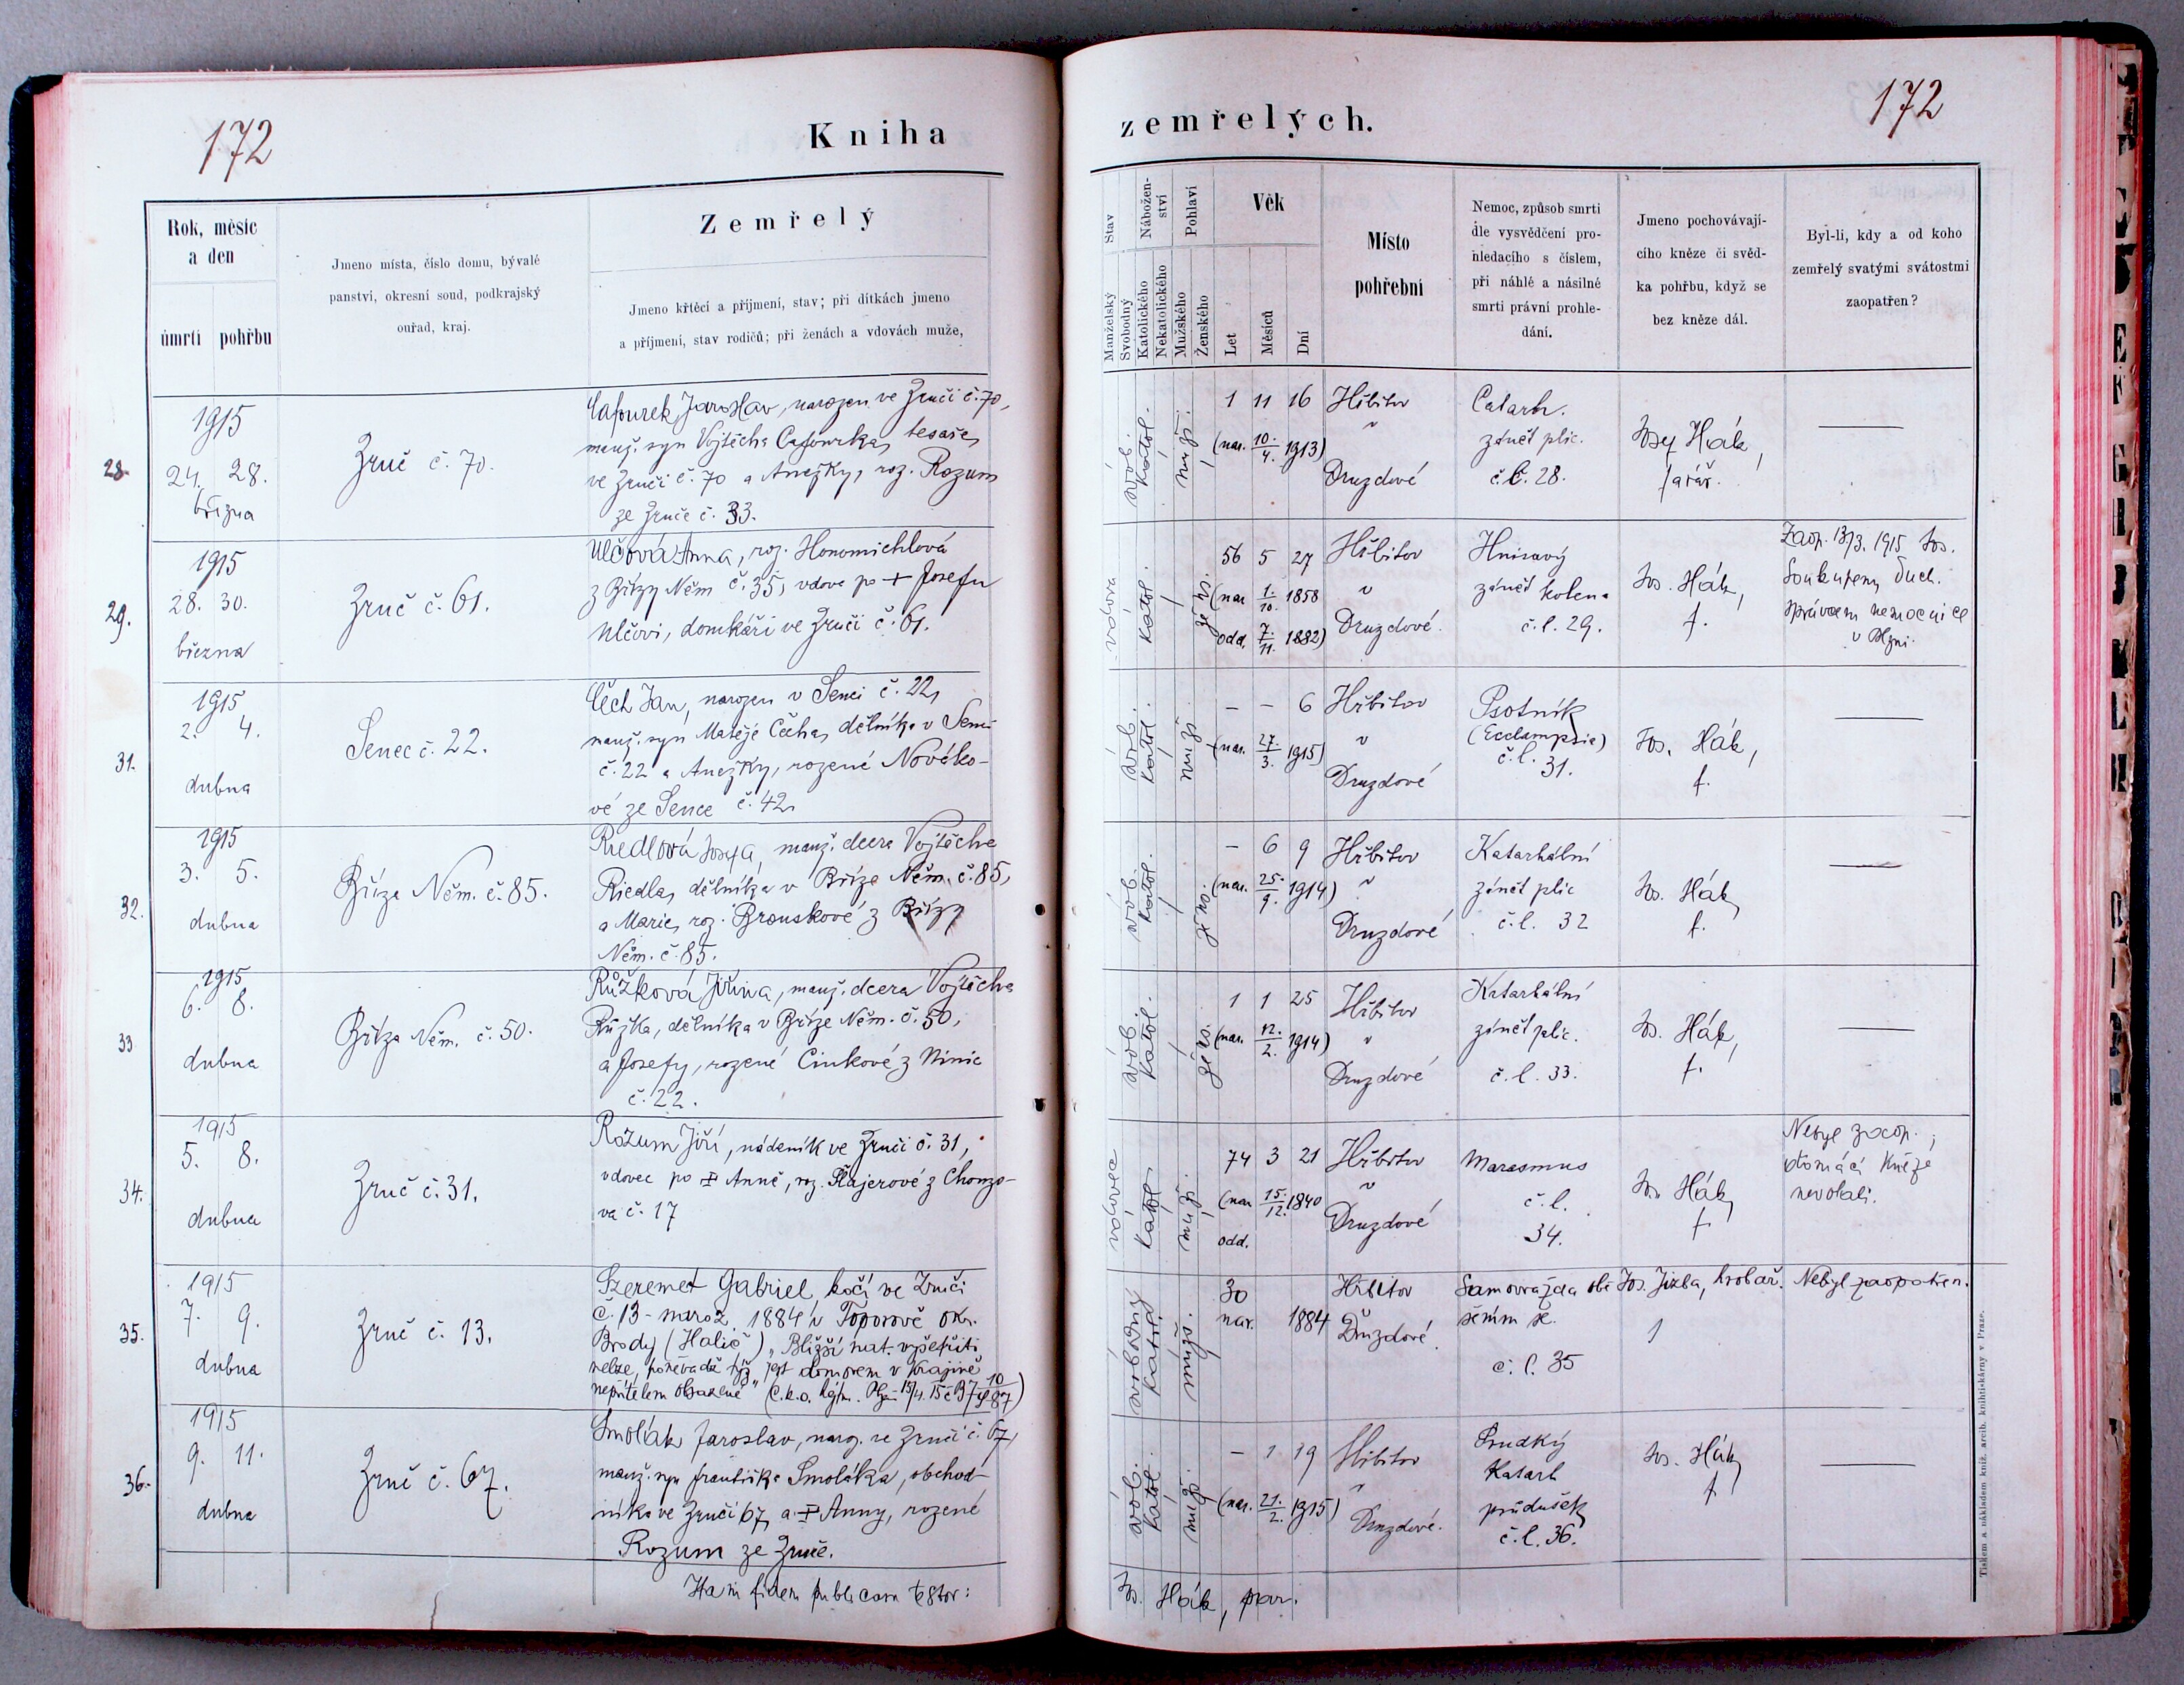 172
Kniha
Rok, měsíc
a den
úmrtí pohřbu
Jmeno místa, číslo domu, bývalé
panství, okresní soud, podkrajský
ouřad, kraj.
Zemřelý
Jmeno křtěcí a příjmení, stav; při dítkách jmeno
a příjmení, stav rodičů; při ženách a vdovách muže,
28.
1915
24. 28.
března
Zruč č. 70.
Cafourek Jaroslav, narozen ve Zruči č. 70,
manž. syn Vojtěcha Cafourka, tesaře,
ve Zruči č. 70 a Anežky, roz. Rozum
ze Zruče č. 33.
29.
1915
28. 30.
března
Zruč č. 61.
Ulčová Anna, roz. Honomichlová
z Břízy Něm č. 35, vdova po + Josefu
Ulčovi, domkáři ve Zruči č. 61.
31.
1915
2. 4.
dubna
Senec č. 22.
Čech Jan, narozen v Senci č. 22,
manž. syn Matěje Čecha, dělníka v Senci
č. 22 a Anežky, rozené Nováko-
vé ze Sence č. 42.
32.
1915
3. 5.
dubna
Bříza Něm. č. 85.
Riedlová Josefa, manž. dcera Vojtěcha
Riedla, dělníka v Bříze Něm. č. 85,
a Marie, roz. Brouskové z Břízy
Něm. č. 85.
33
1915
6. 8.
dubna
Bříza Něm. č. 50.
Růžková Jiřina, manž. dcera Vojtěcha
Růžka, dělníka v Bříze Něm. č. 50,
a Josefy, rozené Cinkové z Ninic
č. 22.
34.
1915
5. 8.
dubna
Zruč č. 31.
Rozum Jiří, nádeník ve Zruči č. 31,
vdovec po + Anně, roz. Plajerové z Chomzo-
va č. 17
35.
1915
7. 9.
dubna
Zruč č. 13.
Szeremet Gabriel, kočí ve Zruči
č. 13 - naroz. 1884 v Toporově okr.
Brody (Halič) „Bližší nat. vyšetřiti
nelze, poněvadž týž jest domovem v krajině
nepřítelem obsazené"
36.
1915
9. 11.
dubna
Zruč č. 67.
Smolák Jaroslav, naroz. ve Zruči č. 67,
manž. syn Františka Smoláka, obchod-
níka ve Zruči 67, a + Anny, rozené
Rozum ze Zruče.
Ita in fidem publicam testor:
zemřelých.
172
Stav
Manželský
Svobodný
Nábožen-
ství
Katolického
Nekatolického
Pohlaví
Mužského
Ženského
Věk
Let
Měsíců
Dní
Místo
pohřební
Nemoc, způsob smrti
dle vysvědčení pro-
hledacího s číslem,
při náhlé a násilné
smrti právní prohle-
dání.
Jmeno pochovávají-
cího kněze či svěd-
ka pohřbu, když se
bez kněze dál.
Byl-li, kdy a od koho
zemřelý svatými svátostmi
zaopatřen?
svob.
katol.
muž.
1 11 16
(nar. 10./4. 1913)
Hřbitov
v
Druzdové
Catarh.
zánět plic.
č. l. 28.
Josef Hák,
farář.
—
vdova
katol.
žens.
56 5 27
(nar 1./10. 1858
odd. 7./11. 1882)
Hřbitov
v
Druzdové.
Hnisavý
zánět kolena
č. l. 29.
Jos. Hák,
f.
Zaop. 13/3. 1915 Jos.
Soukupem, duch.
správcem nemocnice
v Plzni.
svob.
katol.
muž
— — 6
(nar. 27./3. 1915)
Hřbitov
v
Druzdové
Psotník
(Ecclampsie)
č. l.
31.
Jos. Hák,
f.
—
svob.
katol.
žens.
— 6 9
(nar. 25./9. 1914)
Hřbitov
v
Druzdové
Katarhální
zánět plic
č. l. 32
Jos. Hák,
f.
—
svob.
katol.
žens.
1 1 25
(nar. 12./2. 1914)
Hřbitov
v
Druzdové
Katarhální
zánět plic.
č. l. 33.
Jos. Hák,
f.
—
vdovec
katol.
muž.
74 3 21
(nar 15./12. 1840
odd.
Hřbitov
v
Druzdové
Marasmus
č. l.
34.
Jos. Hák,
f.
Nebyl zaop.;
domácí kněze
nevolali.
svobodný
katol.
mužs.
30
nar. 1884
Hřbitov
Druzdové.
Samovražda obě
šením se.
č. l. 35
Jos. Jizba, hrobař.
Nebyl zaopatřen.
svob.
katol.
muž.
— 1 19
(nar. 21./2. 1915)
Hřbitov
v
Druzdové.
Prudký
Katarh
průdušek
č. l. 36.
Jos. Hák,
f.
—
Jos. Hák, par.
Tiskem a nákladem kníž. arcib. knihtiskárny v Praze.